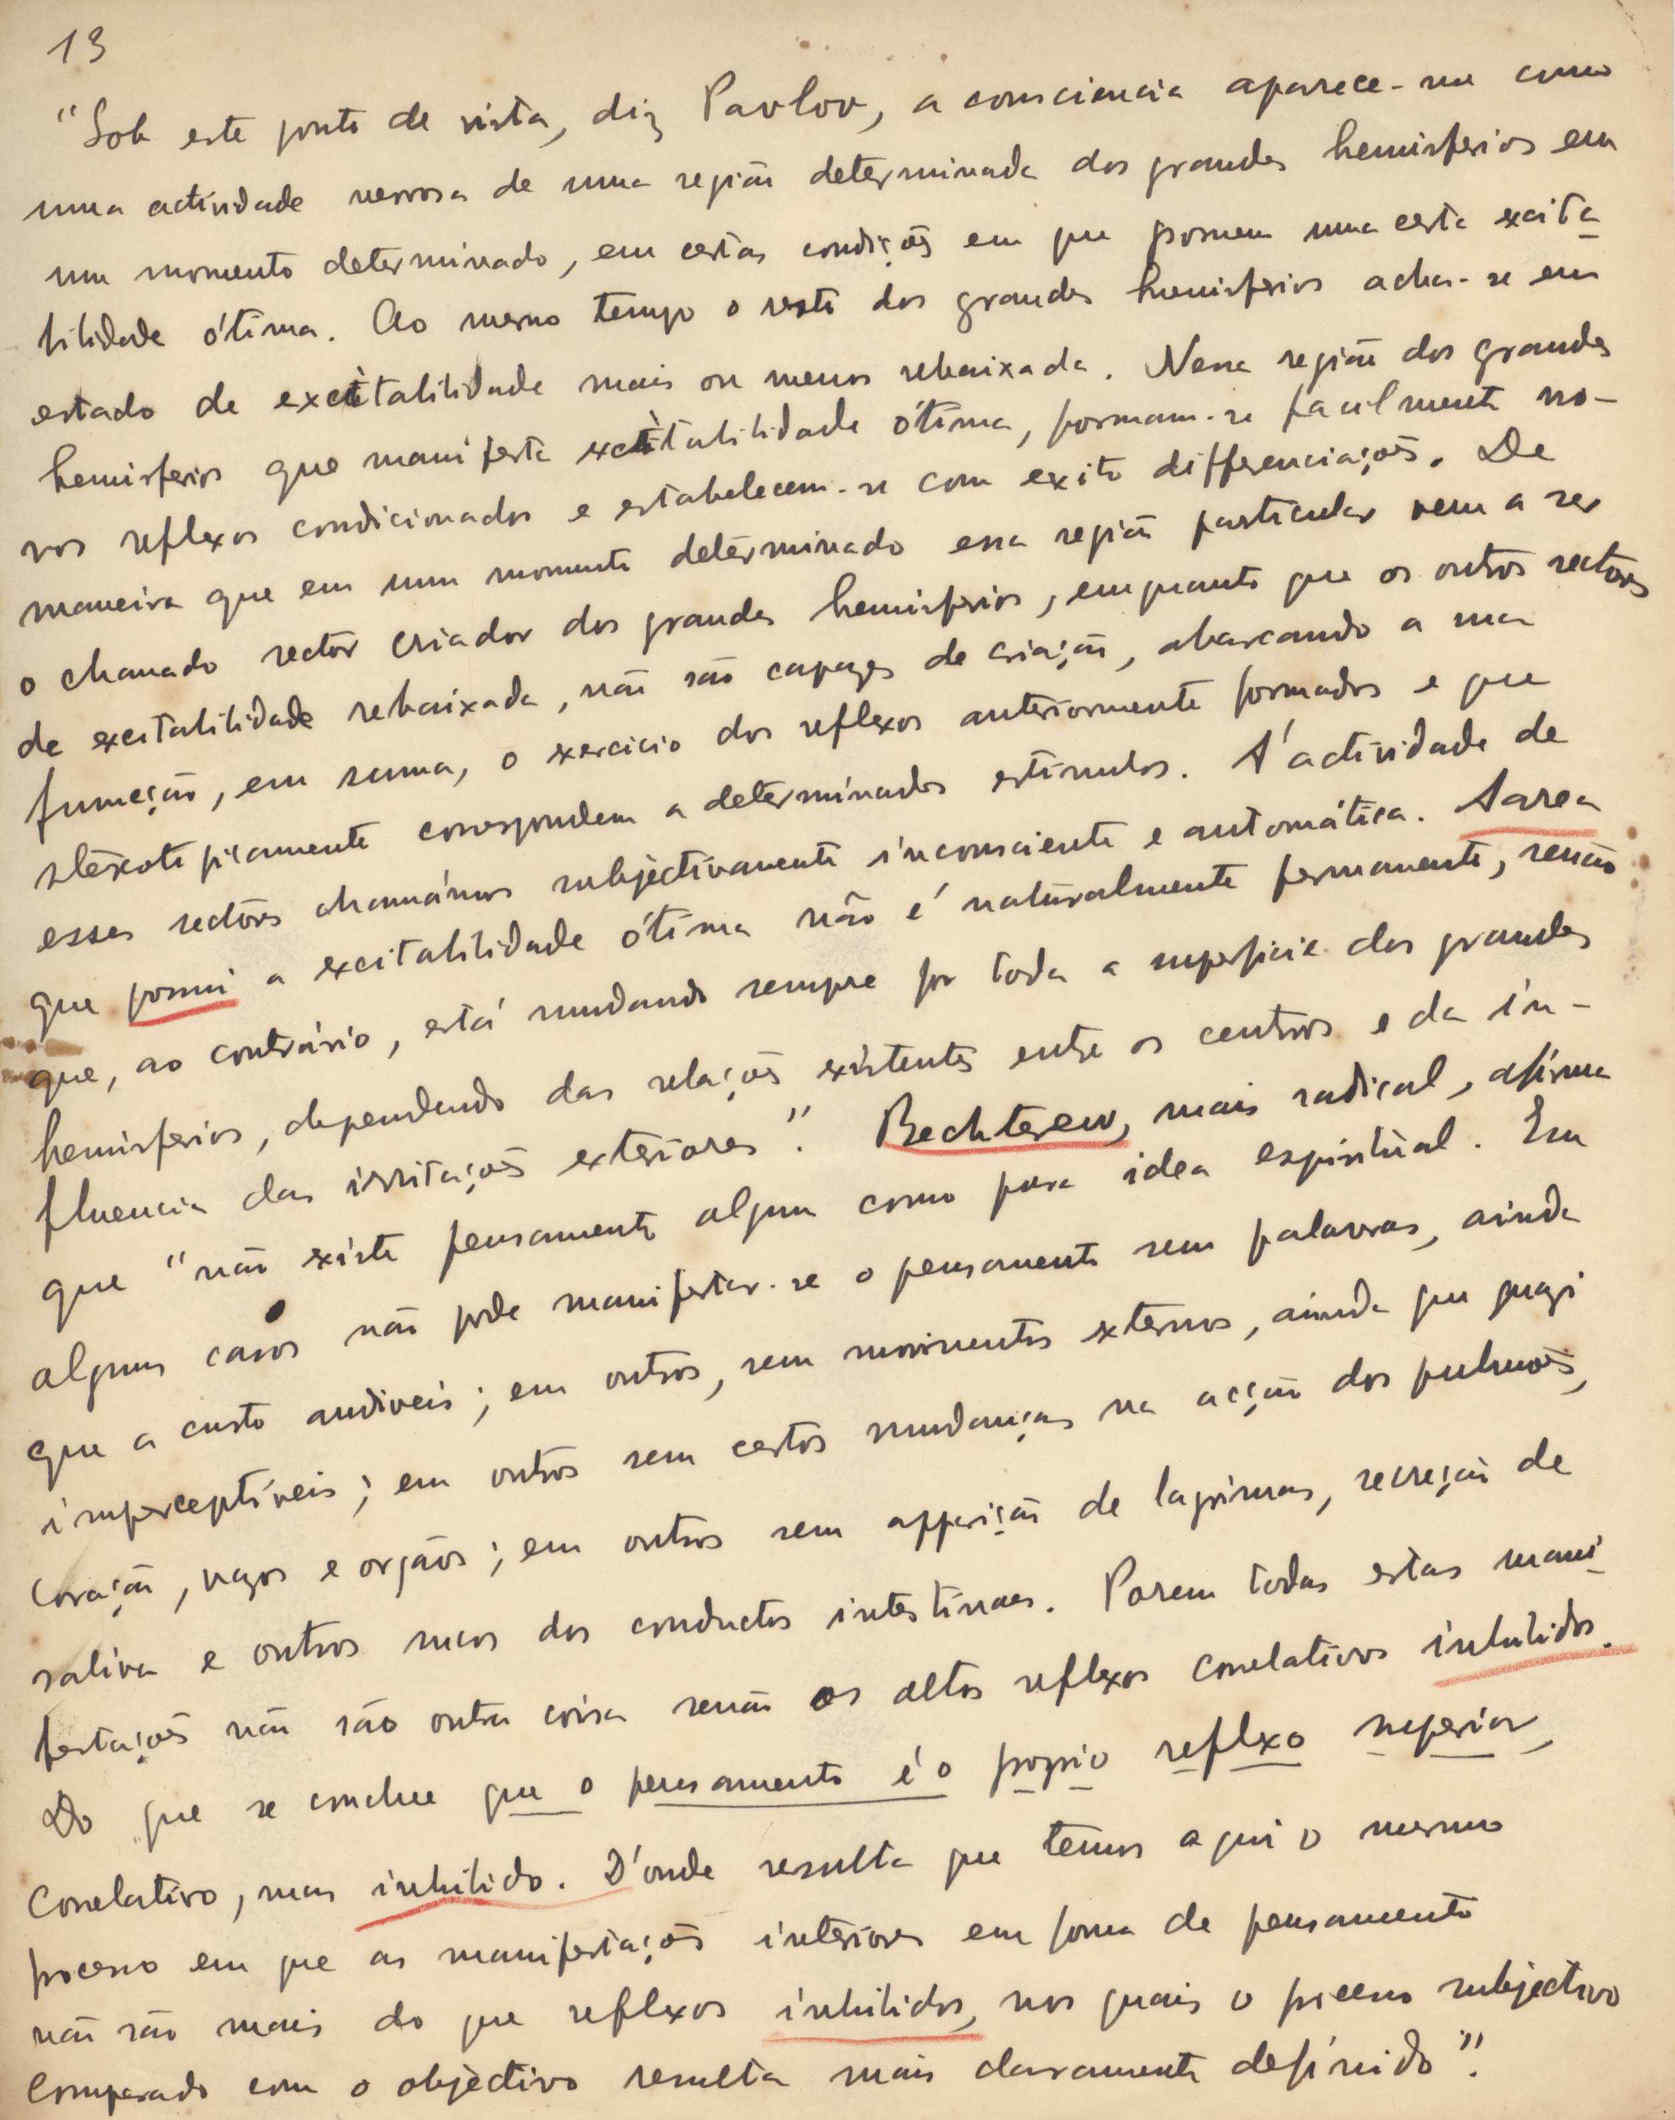 13
"Sob este ponto de vista, diz Pavlov, a consciencia aparece-me como
uma actividade nervosa de uma região determinada dos grandes hemisferios em
um momento determinado, em certas condições em que possuem uma certa excita
bilidade ótima. Ao mesmo tempo o resto dos grandes hemisferios acha-se em
estado de excitabilidade mais ou menos rebaixada. Nessa região dos grandes
hemisferios que manifesta excitabilidade ótima, formam-se facilmente no-
vos reflexos condicionados e estabelecem-se com exito differenciações. De
maneira que em um momento determinado essa região particular vem a ser
o chamado sector criador dos grandes hemisferios, emquanto que os outros sectores
de excitabilidade rebaixada, não são capazes de criação, abarcando a sua
funcção, em suma, o exercicio dos reflexos anteriormente formados e que
stereotipicamente correspondem a determinados estimulos. A' actividade de
esses sectores chamâmos subjectivamente inconsciente e automática. A area
que possui a excitabilidade ótima não é naturalmente permanente, senão
que, ao contrário, está mudando sempre por toda a superficie dos grandes
hemisferios, dependendo das relações existentes entre os centros e da in-
fluencia das irritações exteriores". Bechterew, mais radical, afirma
que "não existe pensamento algum como pura idea espiritual. Em
alguns casos não pode manifestar-se o pensamento sem palavras, ainda
que a custo audiveis; em outros, sem movimentos externos, ainda que quazi
imperceptíveis; em outros sem certos mudanças na acção dos pulmões,
coração, vazos e orgãos; em outros sem apparição de lagrimas, secreção de
saliva e outros sucos dos conductos intestinaes. Porem todas estas mani
festações não são outra coisa senão os altos reflexos correlativos inhibidos.
Do que se conclue que o pensamento é o proprio reflexo superior,
correlativo, mas inhibido. D'onde resulta que temos aqui o mesmo
processo em que as manifestações interiores em forma de pensamento
não são mais do que reflexos inhibidos, nos quais o processo subjectivo
comparado com o objectivo resulta mais claramente definido".